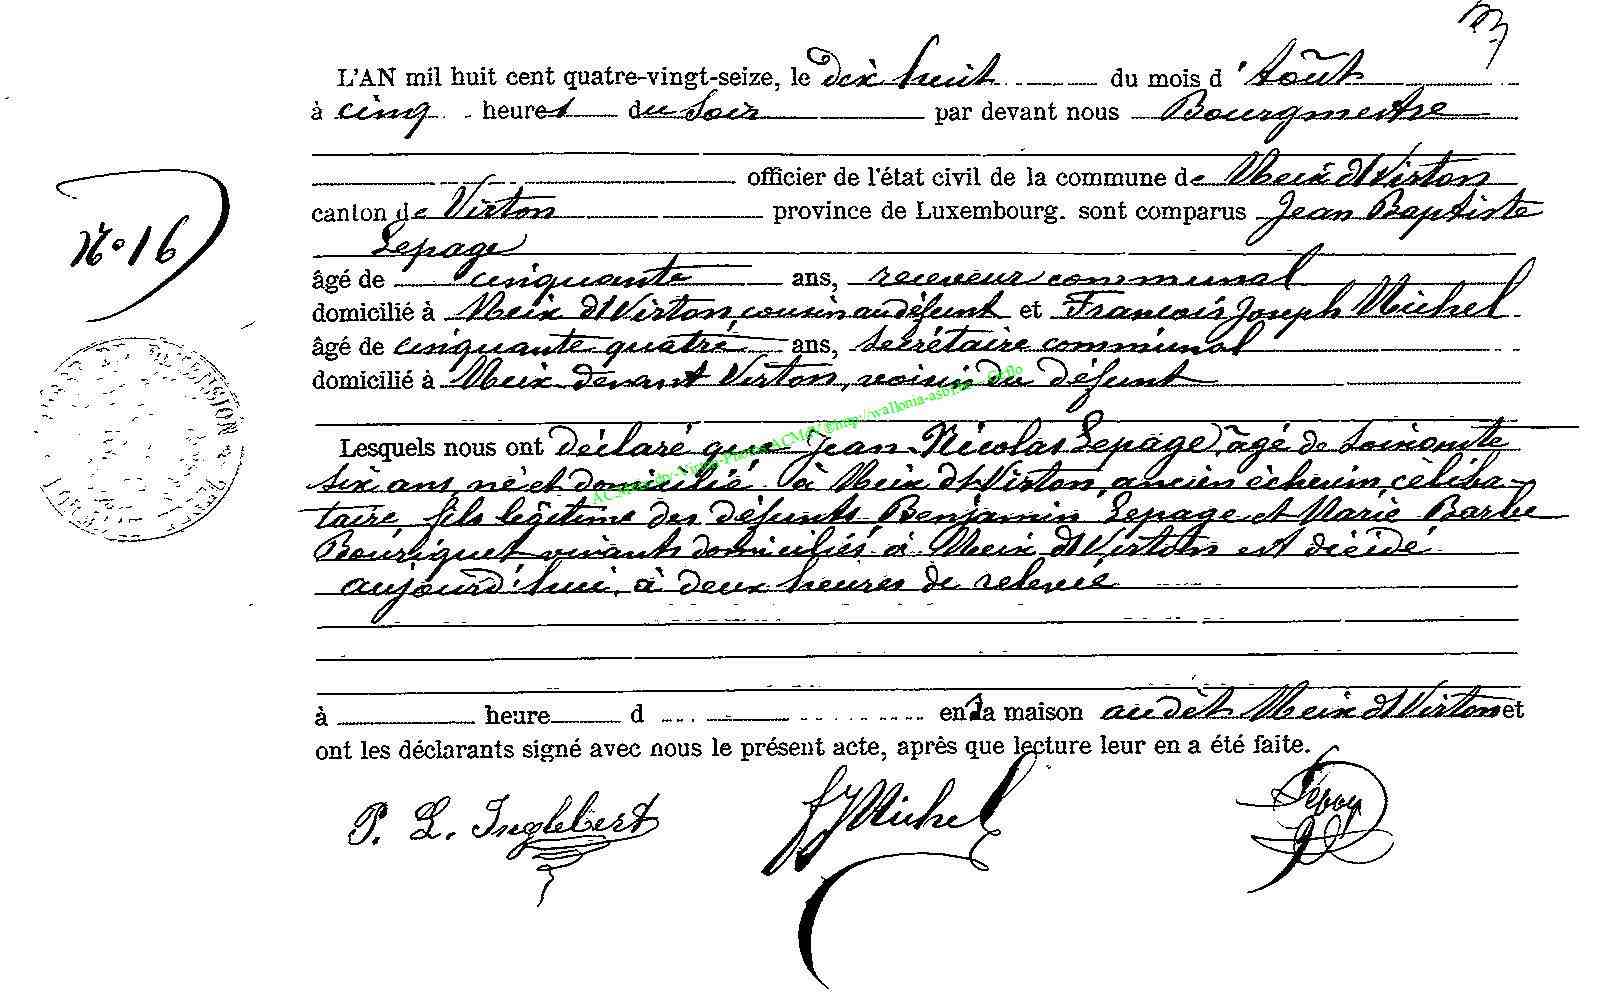 L'AN mil huit cent quatre-vingt-seize, le dix huit du mois d'Août
à cinq heures du soir par devant nous Bourgmestre
officier de l'état civil de la commune de Meix dt Virton
canton de Virton province de Luxembourg. sont comparus Jean Baptiste
Lepage
N° 16
âgé de cinquante ans, receveur communal
domicilié à Meix dt Virton, cousin au défunt et François Joseph Michel
âgé de cinquante quatre ans, secrétaire communal
domicilié à Meix devant Virton, voisin du défunt
Lesquels nous ont déclaré que Jean Nicolas Lepage, âgé de soixante
six ans, né et domicilié à Meix dt Virton, ancien échevin, céliba-
taire, fils légitime des défunts Benjamin Lepage et Marie Barbe
Bouriquet vivants domiciliés à Meix dt Virton est décédé
aujourd'hui, à deux heures de relevée
à heure d en la maison audit Meix dt Virton et
ont les déclarants signé avec nous le présent acte, après que lecture leur en a été faite.
P. L. Inglebert FJMichel Lepage